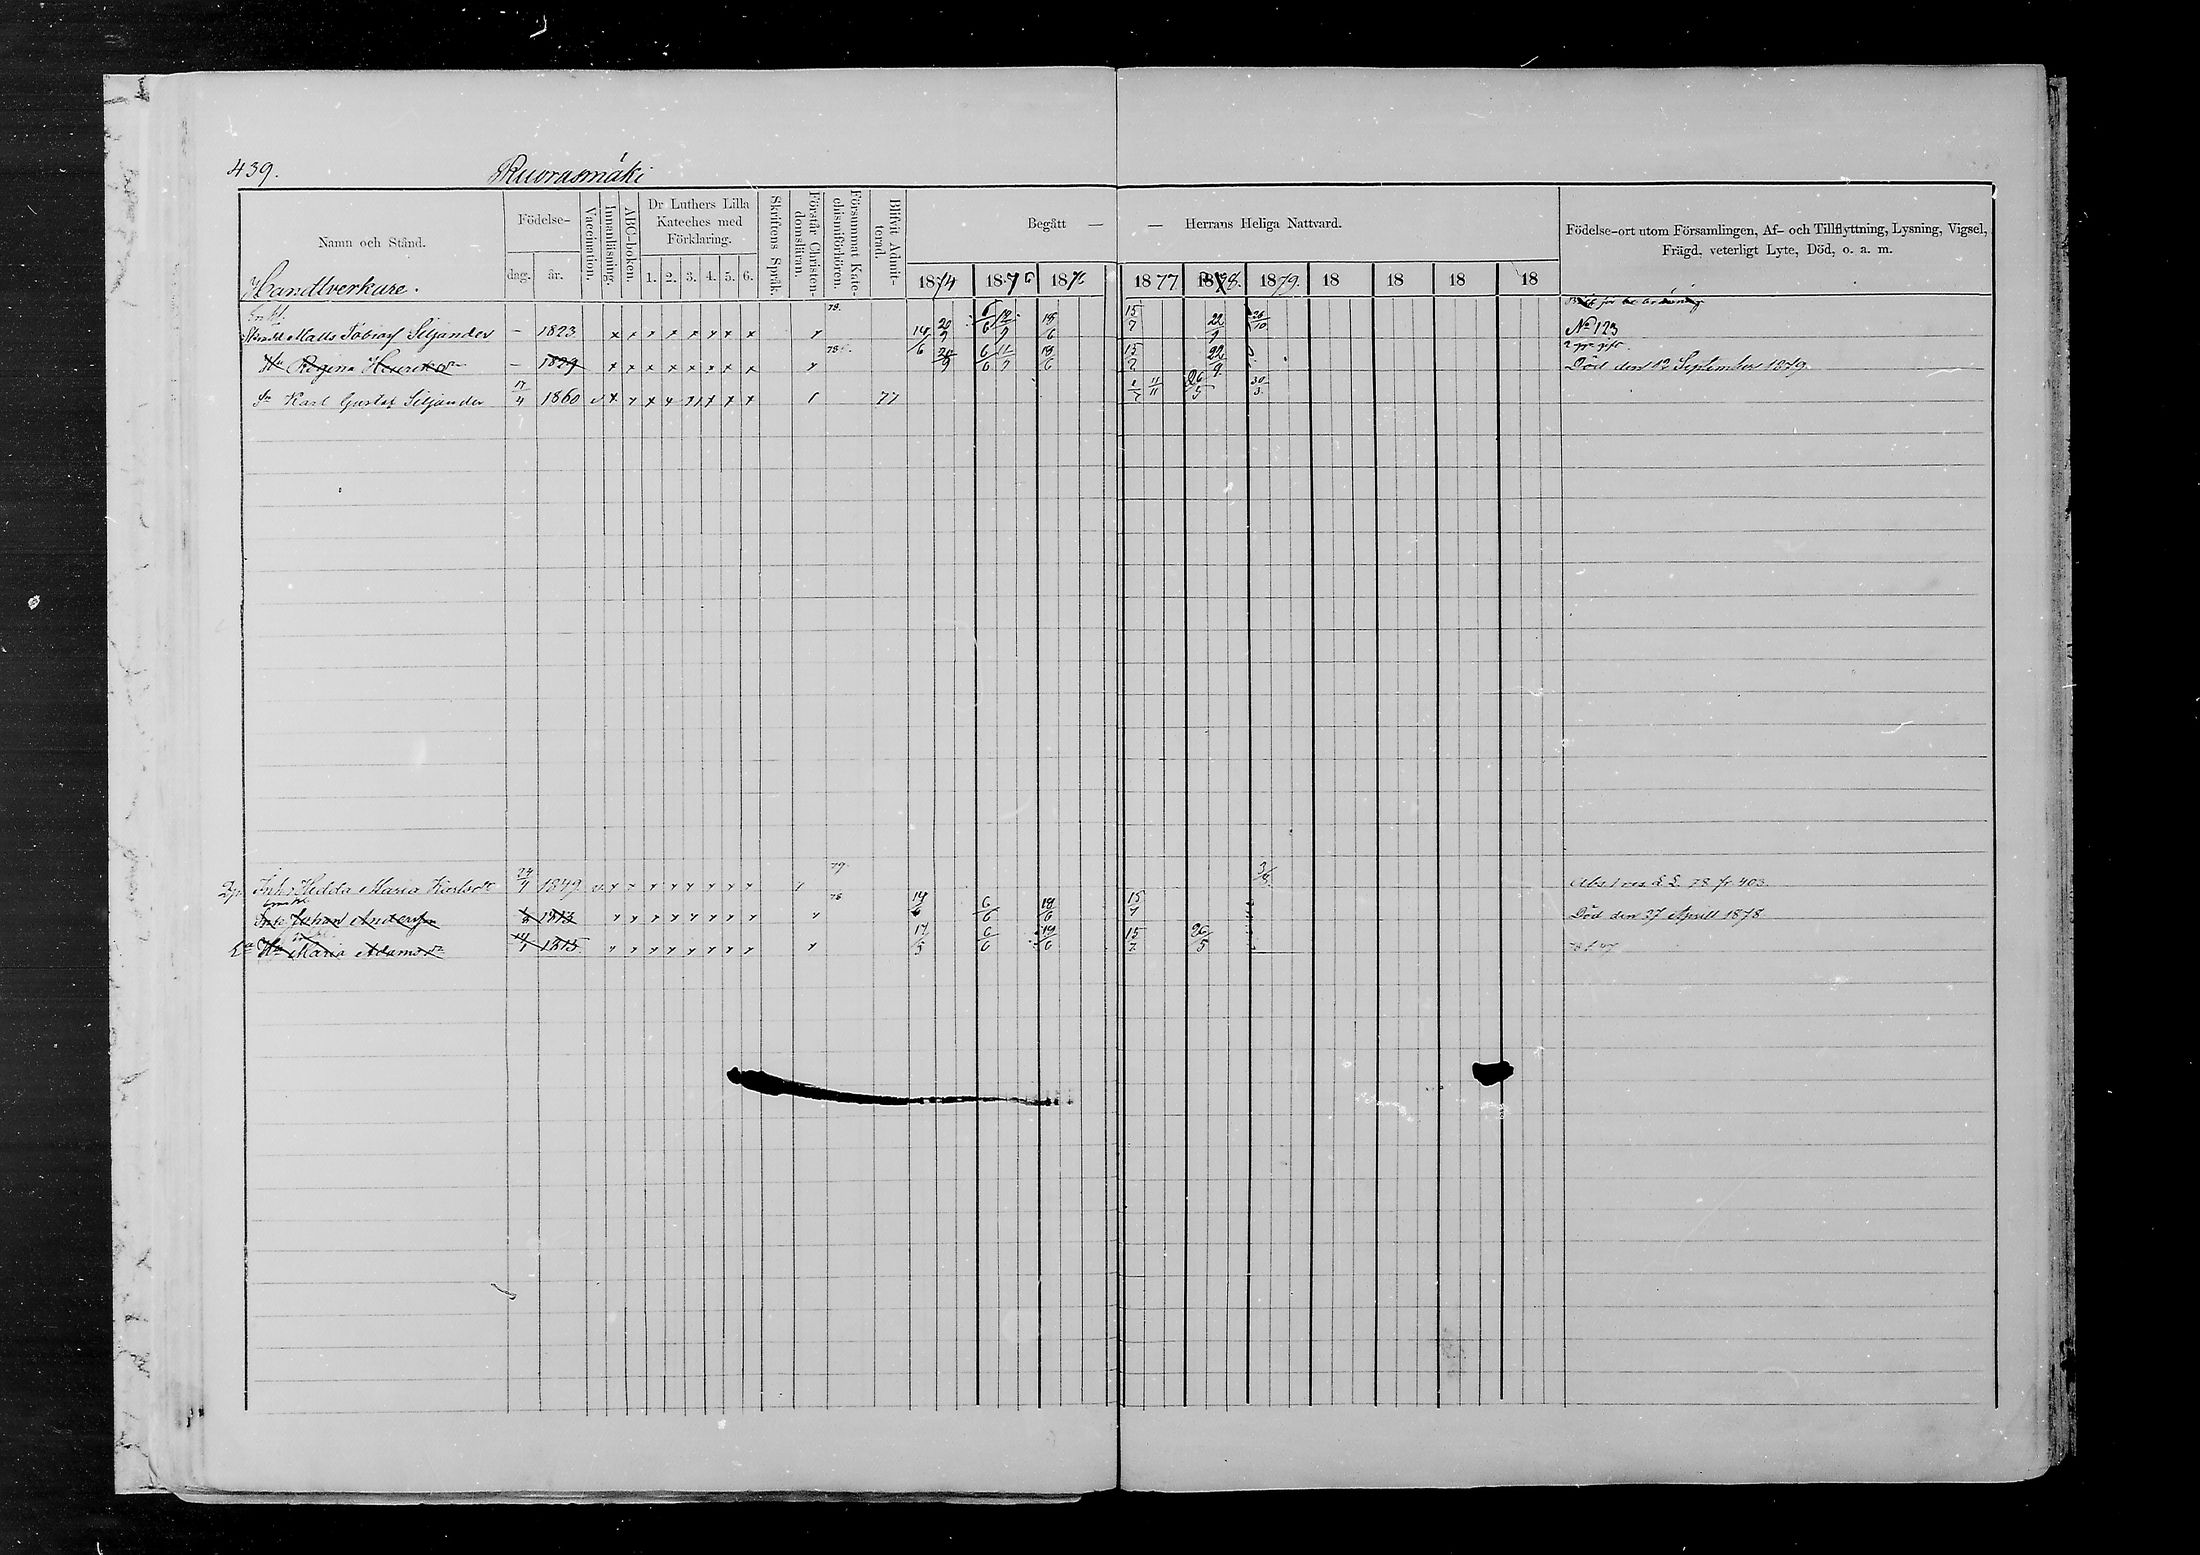 439. Ruorasmäki
Namn och Stånd. Födelse- dag. år. Vaccination. Innanläsning. ABC-boken. Dr Luthers Lilla Kateches med Förklaring. 1. 2. 3. 4. 5. 6. Skriftens Språk. Förstår Christendomsläran. Försummat Katechismiförhören. Blifvit Admitterad. Begått — — Herrans Heliga Nattvard. Födelse-ort utom Församlingen, Af- och Tillflyttning, Lysning, Vigsel, Frägd, veterligt Lyte, Död, o. a. m.
1874 1875 1876 1877 1878. 1879. 18 18 18 18
Handtverkare.
Enkl. 78.
Matts Tobiasf Siljander – 1823 x x x x x x x x 14/6 20/9 6/6 18/6 15/7 22/9 26/10 No 123
Hu Regina Henriksdr – 1829 x x x x x x x x 78 20/9 6/6 11/7 18/6 15/7 22/9 Död den 12 September 1879.
Sn Karl Gustaf Siljander 17/4 1860 v x x x x x x x 77 1/7 11/11 26/5 30/3
Hedda Maria Karlsdr 24/7 1849 v 79. 3/8 78 fr 403.
Johan Andersson 1813 78 14/6 6/6 18/6 15/7 Död den 27 April 1878
Hu Maria Adamsdr 14/1 1815 14/5 6/6 19/6 15/7 26/5